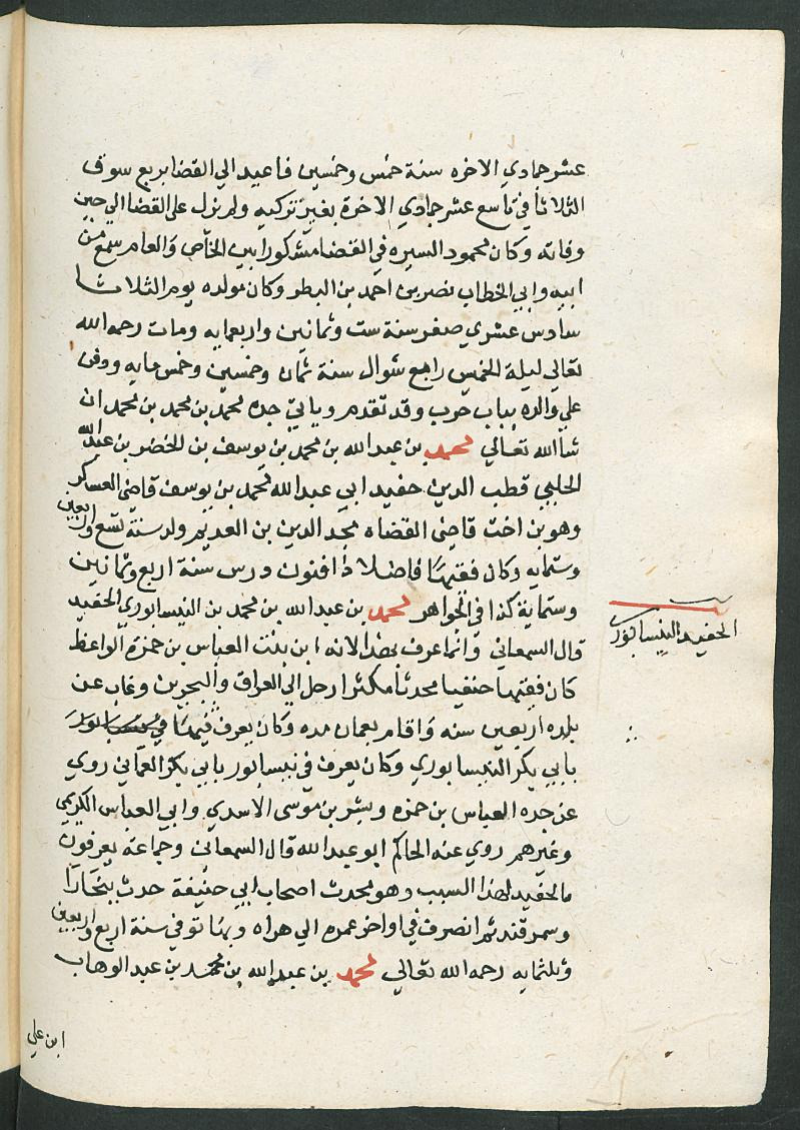 عشر جمادي الاخره سنة خمس وخمسين فاعيد الي القضا بربع سوق
الثلاثا في تاسع عشر جمادي الاخرة بغير تزكيه ولم نزل علي القضا الي حين
وفاته وكان محمود السيره في القضا مشكورا بين الخاص والعام سمع من
ابيه وابي الخطاب نصر بن احمد بن البطر وكان مولده يوم الثلاثا
سادس عشري صفر سنة ست وثمانين واربعمايه ومات رحمه الله
تعالي ليلة الخميس رابع شوال سنة ثمان وخمسين وخمس مايه ودفن
علي والده بباب حرب وقد تقدم وياتي جده محمد بن محمد بن محمد ان
شا الله تعالي محمد بن عبد الله بن محمد بن يوسف بن الخضر بن عبد الله
الحلبي قطب الدين حفيد ابي عبد الله محمد بن يوسف قاضي العسكر
وهو بن اخت قاضي القضاه مجد الدين بن العديم ولد سنة تسع واربعين
وستمايه وكان فقيها فاضلا ذا فنون ودرس سنة اربع وثمانين
وستماية كذا في الجواهر محمد بن عبد الله بن محمد بن النيسابوري الحفيد
قال السمعاني وانما عرف بهذا لانه ابن بنت العباس بن حمزة الواعظ
كان فقيها حنفيا محدثا مكثرا رحل الي العراق والبحرين وغاب عن
بلده اربعين سنه واقام بعمان مده وكان يعرف فيها
بابي بكر النيسابوري وكان يعرف في نيسابور بابي بكر العماني روي
عن جده العباس بن حمزه وبشر بن موسى الاسدي وابي العباس الكريمي
وغيرهم روي عنه الحاكم ابو عبد الله قال السمعاني وجماعة يعرفون
بالحفيد لهذا السبب وهو محدث اصحاب ابي حنيفة حدث ببخارا
وسمرقند ثم انصرف في اواخر عمره الي هراه وبها توفي سنة اربع واربعين
وثلثمايه رحمه الله تعالي محمد بن عبد الله بن محمد بن عبد الوهاب
ابن علي
الحفيد النيسابوري